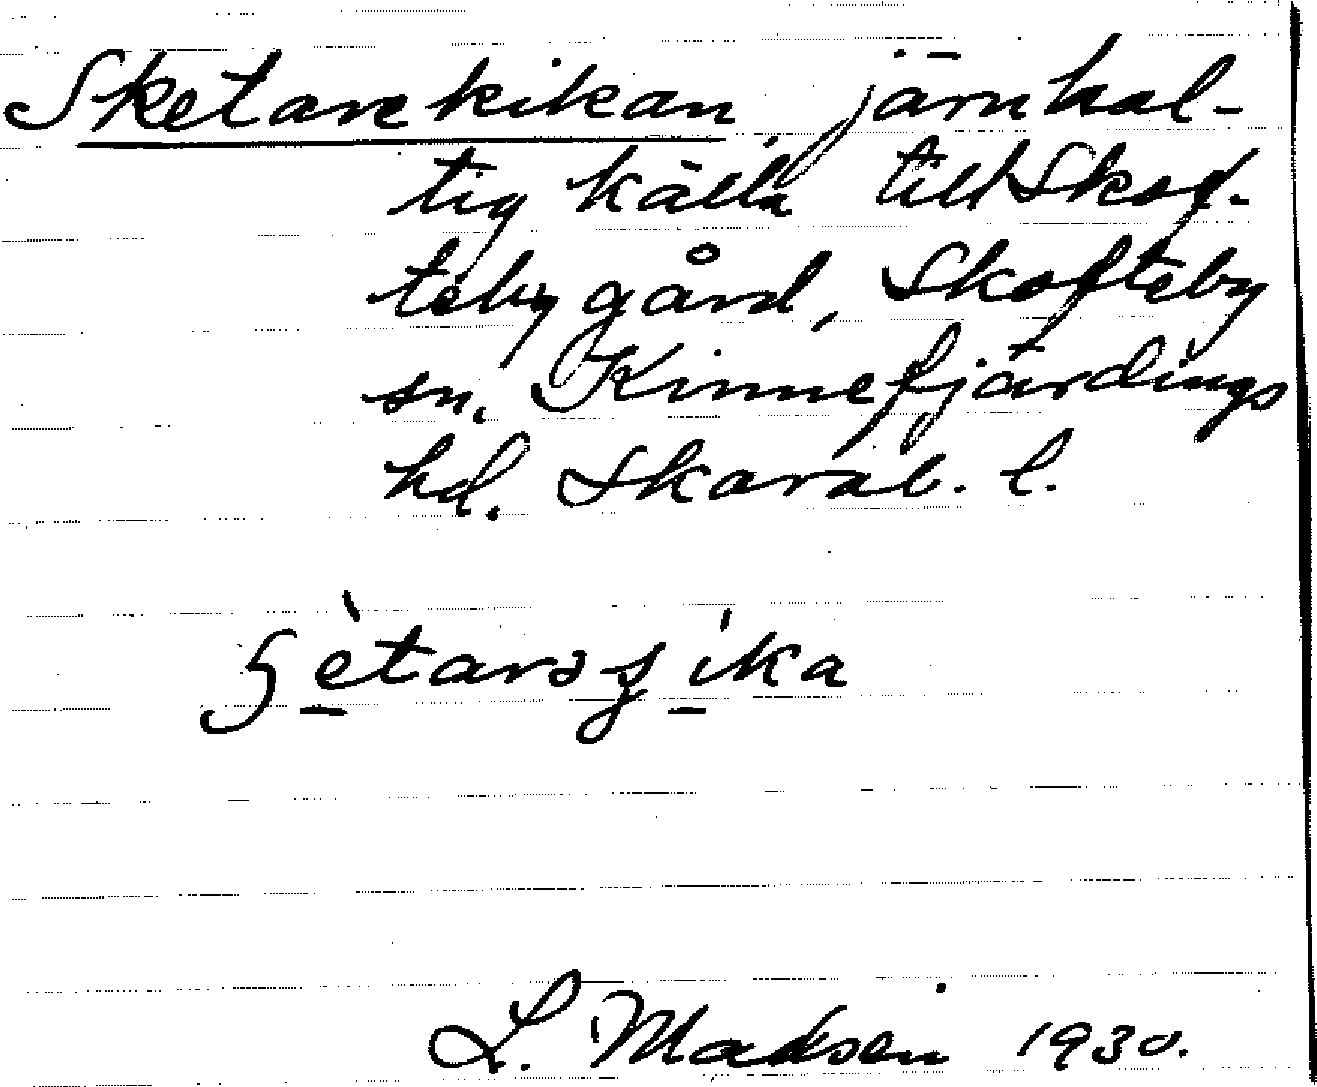 Sketarekikan, järnhal-
tig källa till Skof-
teby gård, Skofteby
sn. Kinnefjärdings
hd. Skarab. l.
L. Madsén 1930.